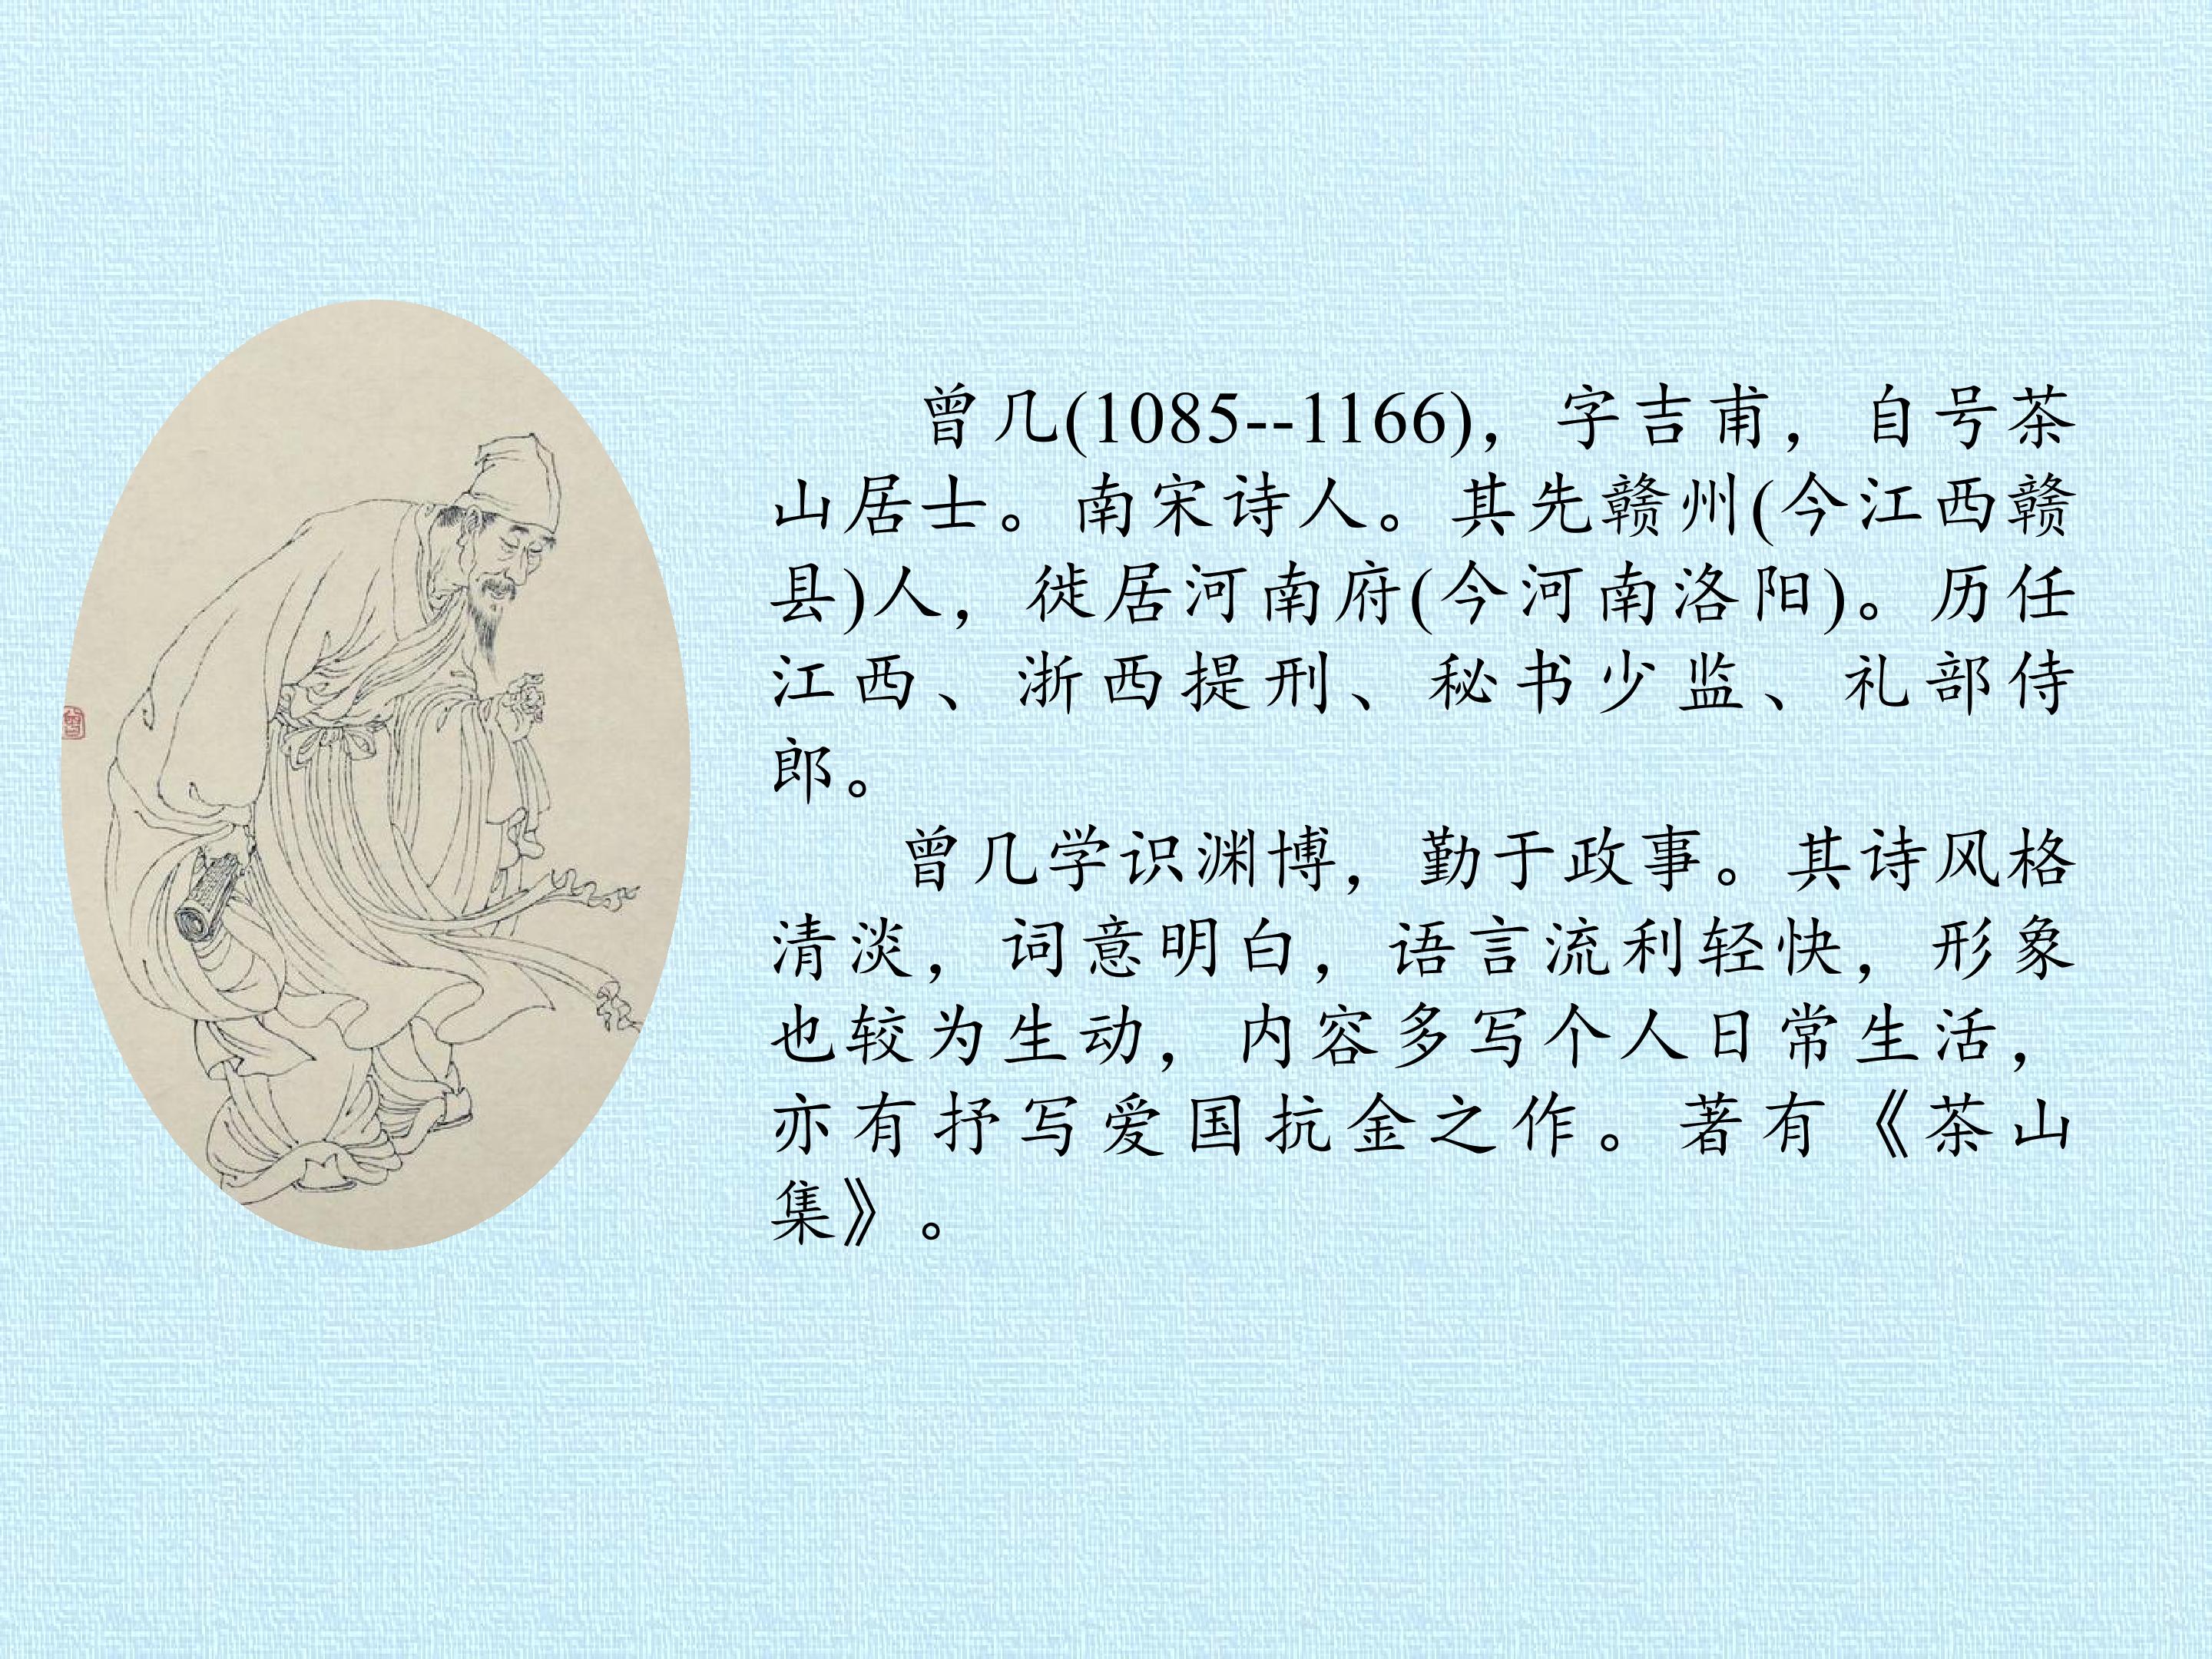 曾几(1085--1166)，字吉甫，自号茶
山居士。南宋诗人。其先赣州(今江西赣
县)人，徙居河南府(今河南洛阳)。历任
江西、浙西提刑、秘书少监、礼部侍
郎。
曾几学识渊博，勤于政事。其诗风格
清淡，词意明白，语言流利轻快，形象
也较为生动，内容多写个人日常生活，
亦有抒写爱国抗金之作。著有《茶山
集》。